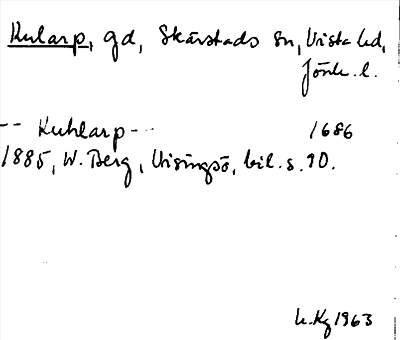 Kularp, gd, Skärstads sn, Vista hd,
Jönk. l.
-- Kuhlarp -- 1686
1885, W. Berg, Visingsö, bil. s. 90.
L. Kg 1963